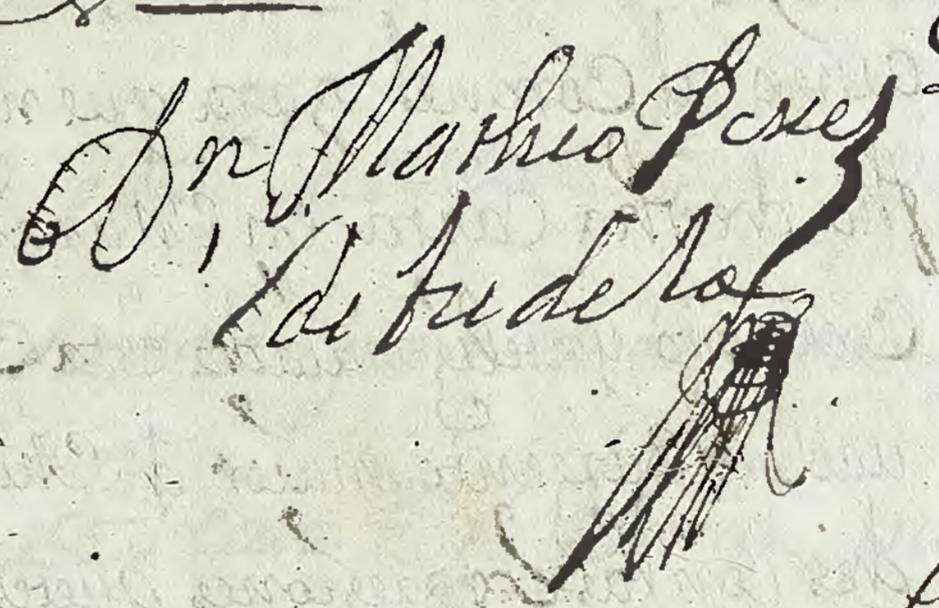 Dn Matheo Peres
de tudela